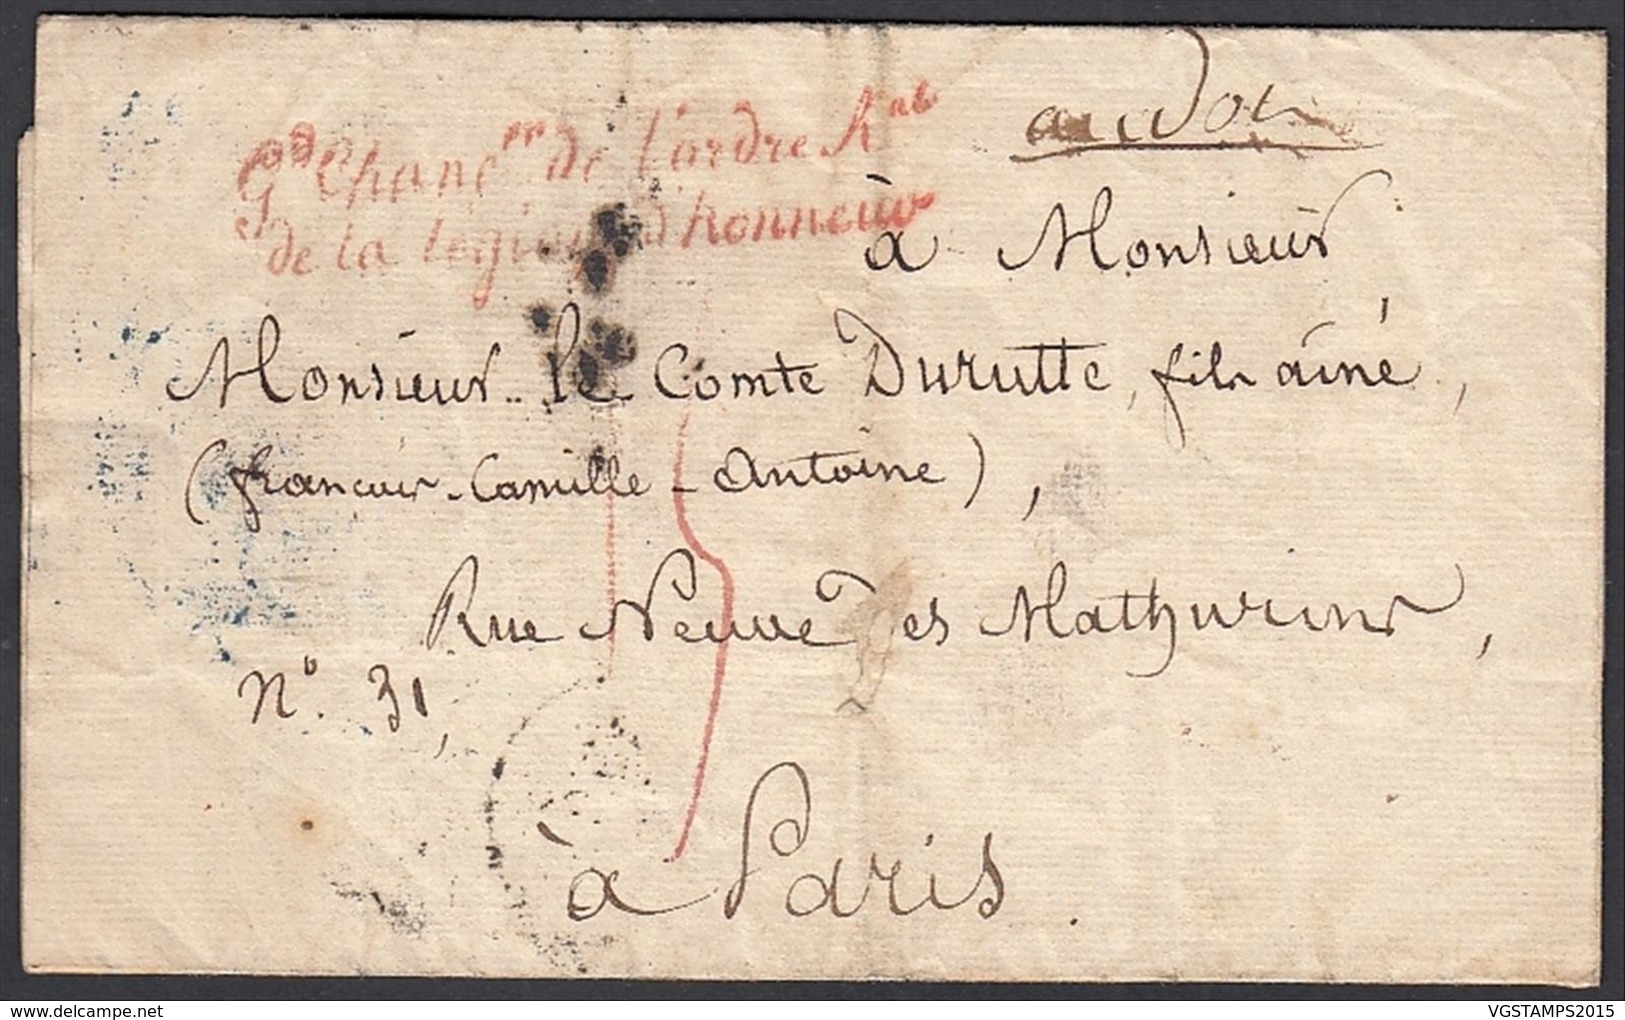 G.d Chanc.er de l'ordre R.al
de la légion d'honneur
à Monsieur
Monsieur le Comte Durutte, fils ainé,
(francois-Camille-Antoine),
Rue Neuve des Mathurins,
N.o 31,
à Paris.
VGSTAMPS2015